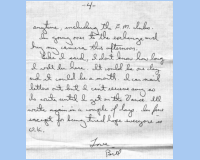 -4-
anytime including the P.M. clubs.
I'm going over to the exchange and
buy my camera this afternoon.
Like I said, I don't know how long
I will be here. It could be one day
and it could be a month. I can mail
letters out but I can't receive any so
do write until I get on the Vance. I'll
write again in a couple of days. I'm fine
except for being tired hope everyone is
O.K.
Love
Bill